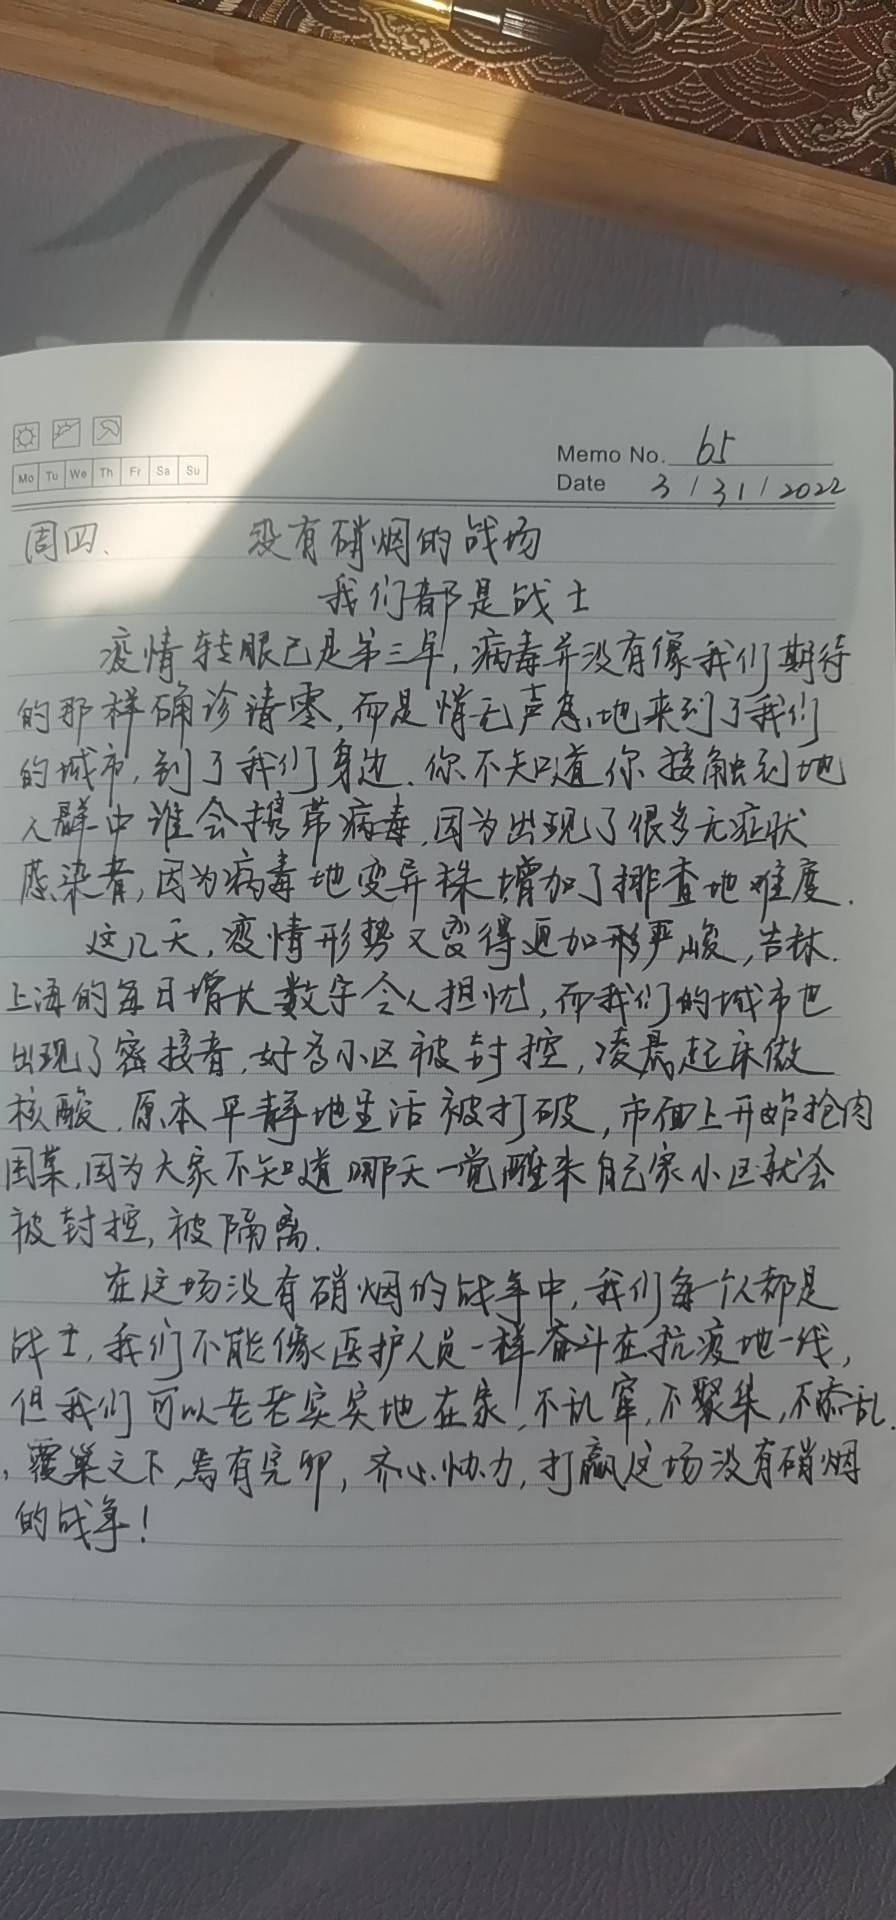 Memo No. 65
Mo Tu We Th Fr Sa Su
Date 3/31/2022
周四、 没有硝烟的战场
我们都是战士
疫情转眼已是第三年,病毒并没有像我们期待
的那样确诊清零,而是悄无声息地来到了我们
的城市,到了我们身边.你不知道你接触到地
人群中谁会携带病毒,因为出现了很多无症状
感染者,因为病毒地变异株增加了排查地难度.
这几天,疫情形势又变得更加形严峻,吉林.
上海的每日增长数字令人担忧,而我们的城市也
出现了密接者,好多小区被封控,凌晨起床做
核酸.原本平静地生活被打破,市面上开始抢肉
囤菜,因为大家不知道哪天一觉醒来自己家小区就会
被封控,被隔离.
在这场没有硝烟的战争中,我们每个人都是
战士,我们不能像医护人员一样奋斗在抗疫地一线,
但我们可以老老实实地在家,不乱窜,不聚集,不添乱.
,覆巢之下,焉有完卵,齐心协力,打赢这场没有硝烟
的战争!